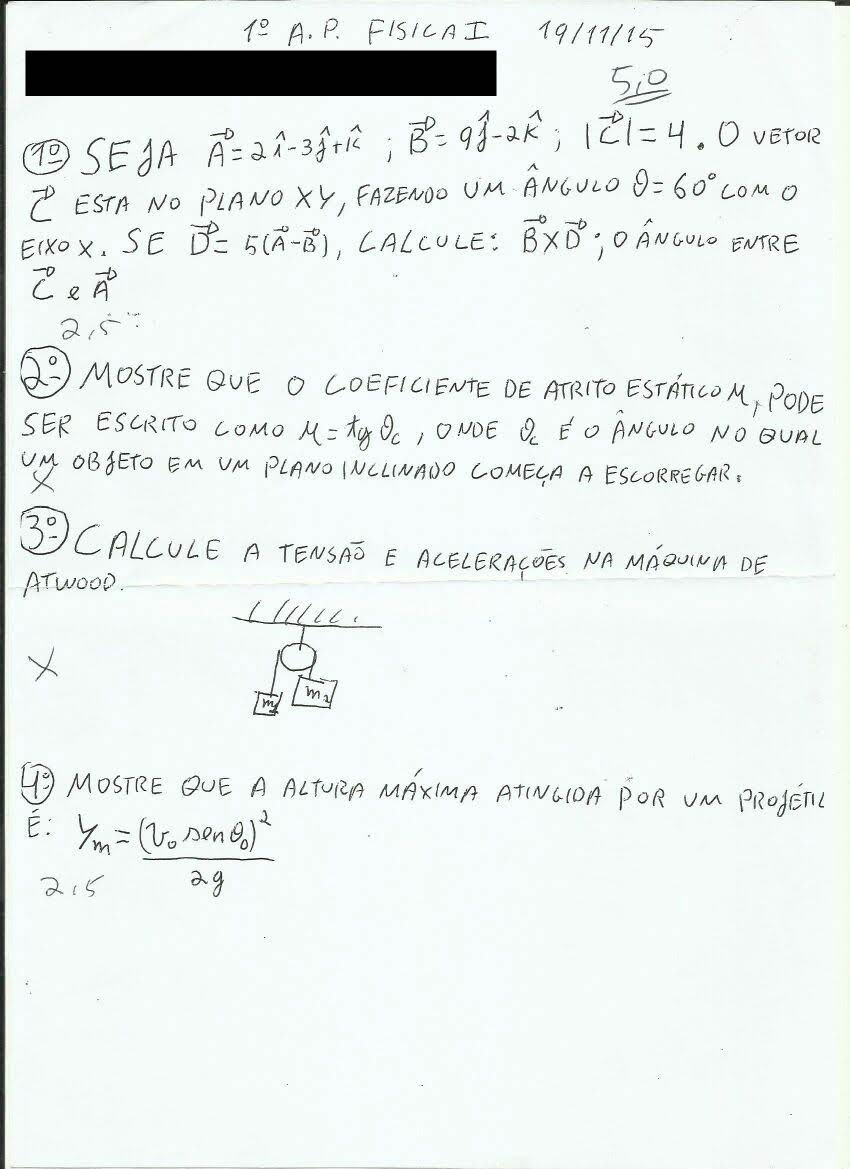 1º A.P. FISICA I 19/11/15
5,0
1º SEJA A⃗=2î-3ĵ+k̂ ; B⃗=9ĵ-2k̂ ; |C⃗|=4. O VETOR
C⃗ ESTA NO PLANO XY, FAZENDO UM ÂNGULO θ=60° COM O
EIXO X. SE D⃗=5(A⃗-B⃗), CALCULE: B⃗XD⃗ ; O ÂNGULO ENTRE
C⃗ e A⃗
2,5
2º MOSTRE QUE O COEFICIENTE DE ATRITO ESTÁTICO M, PODE
SER ESCRITO COMO M=tg θc, ONDE θc É O ÂNGULO NO QUAL
UM OBJETO EM UM PLANO INCLINADO COMEÇA A ESCORREGAR.
X
3º CALCULE A TENSÃO E ACELERAÇÕES NA MÁQUINA DE
ATWOOD.
X
m1 m2
4º MOSTRE QUE A ALTURA MÁXIMA ATINGIDA POR UM PROJÉTIL
É: Ym=(v₀ sen θ₀)²
2g
2,5